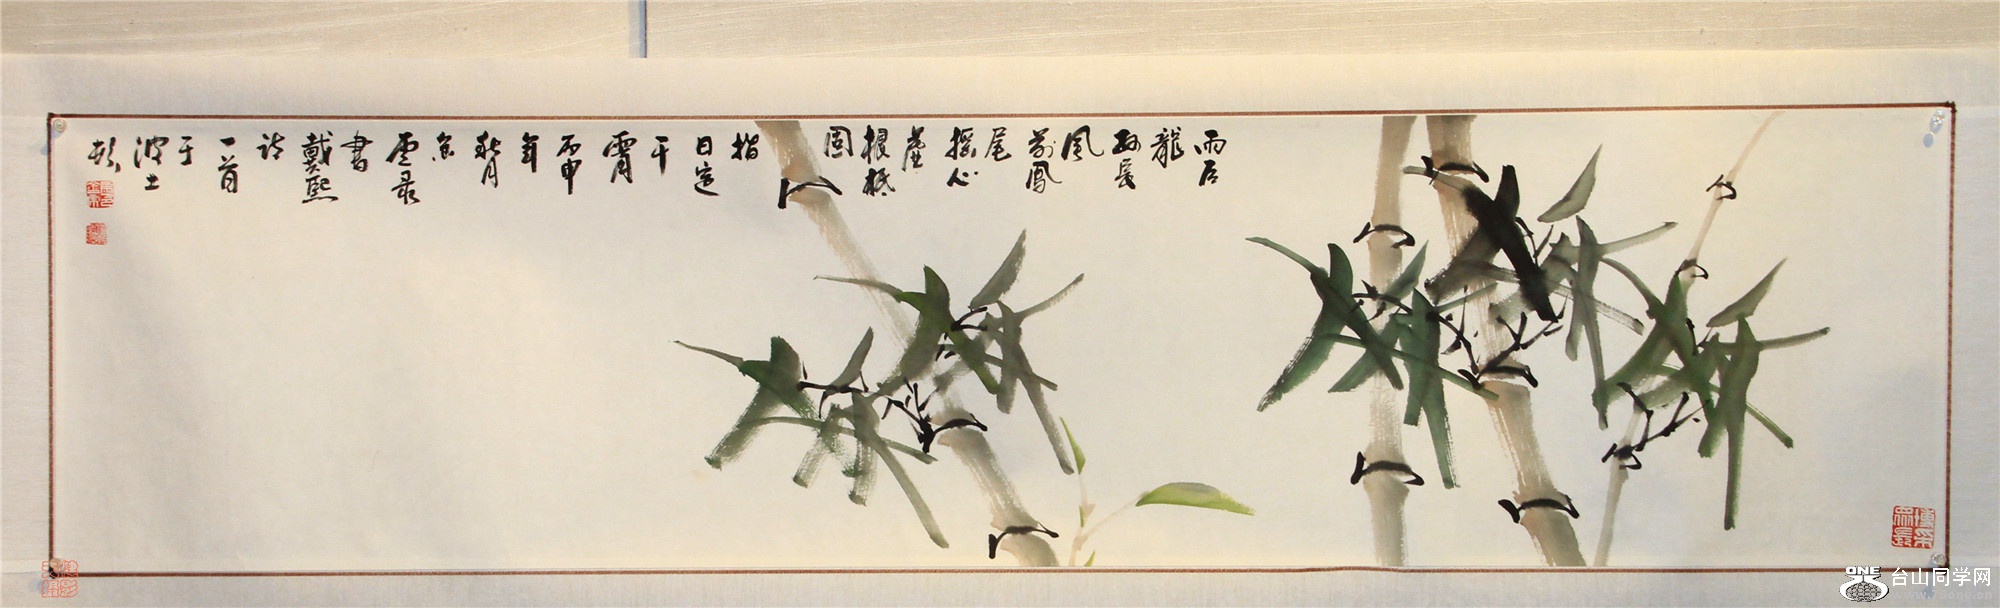 雨后
龍
孫長
風
前鳳
尾
摇心
虛
根柢
固
指
日定
干
霄
丙申
年
秋月
書
戴熙
詩
一首
于
博采眾長
ONE
台山同学网